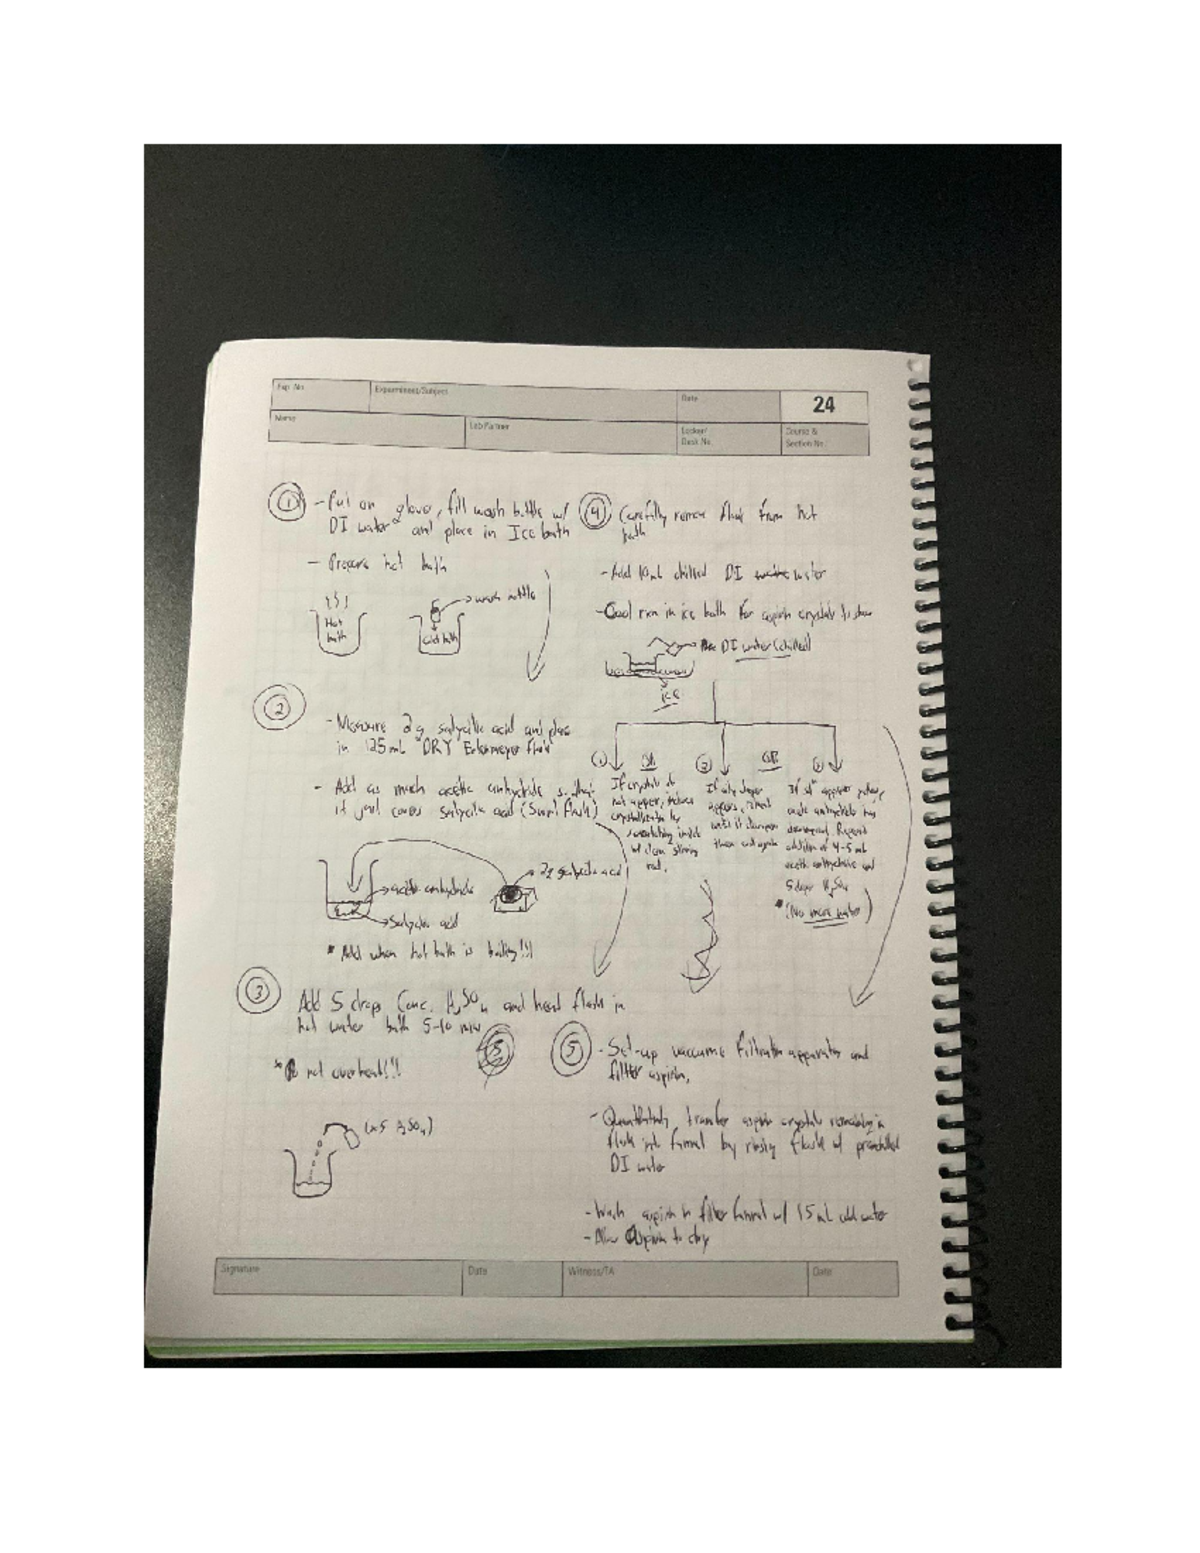 Exp. No.
Experiment/Subject
Date
24
Name
Lab Partner
Locker/
Desk No.
Course &
Section No.
① - Put on gloves, fill wash bottle w/
DI water and place in Ice bath
- Prepare hot bath
Hot
bath
→ wash bottle
cold bath
②
- Measure 2g salycilic acid and place
in 125mL "DRY Erlenmeyer flask"
- Add as much acetic anhydride so that
it just covers Salycilic acid (Swirl flask)
→ acetic anhydride
→ Salycilic acid
→ 2g salycilic acid
* Add when hot bath is boiling!!!
③ Add 5 drops Conc. H₂SO₄ and heat flask in
hot water bath 5-10 min
* Do not overheat!!!
(x5 H₂SO₄)
④ Carefully remove flask from hot
bath
- Add 10mL chilled DI water
- Cool rxn in ice bath for aspirin crystals to show
DI water (chilled)
ice
① OR ② OR ③
If crystals do
not appear, induce
crystallization by
scratching inside
w/ clean stirring
rod.
If oily layer
appears, reheat
until it disappears
then cool again
If appear
acetic anhydride has
decomposed. Repeat
addition of 4-5 mL
acetic anhydride and
5 drops H₂SO₄
* (No more water)
⑤ - Set-up vaccume filtration apparatus and
filter aspirin.
- Quantitatively transfer aspirin crystals remaining in
flask into funnel by rinsing flask w/ prechilled
DI water
- Wash aspirin in filter funnel w/ 15 mL cold water
- Allow Aspirin to dry
Signature
Date
Witness/TA
Date